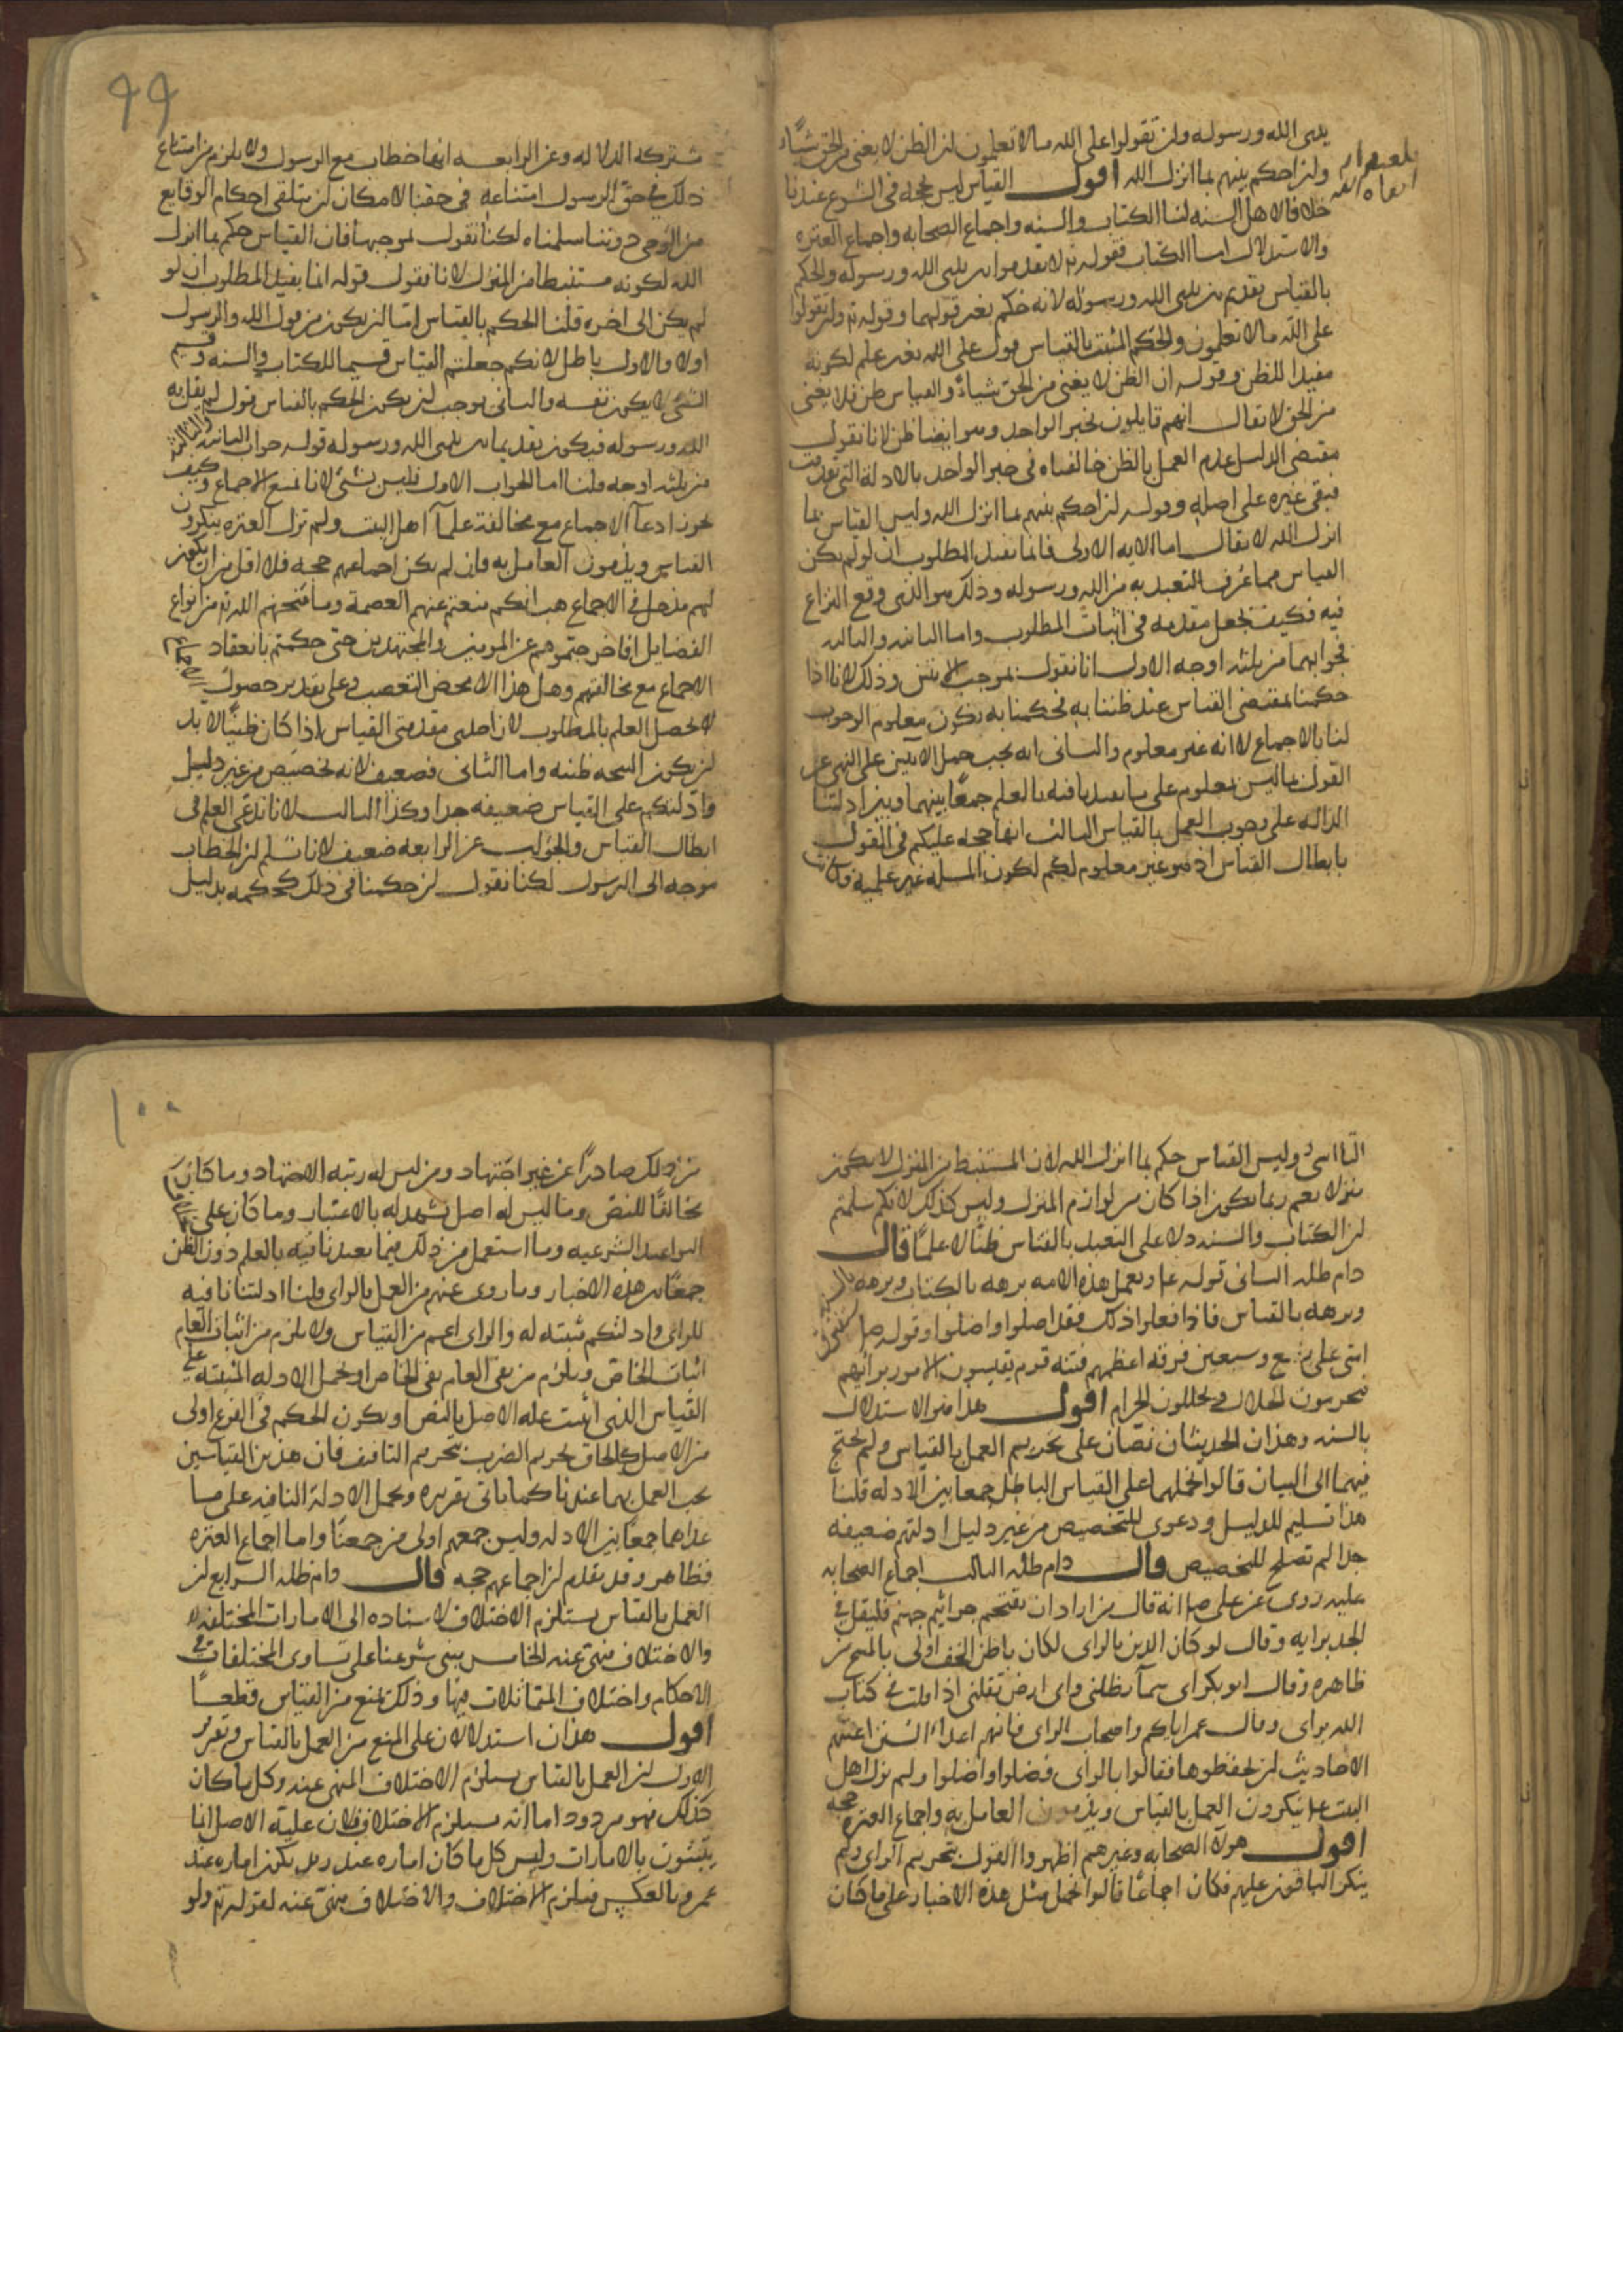 يدي الله ورسوله وان تقولوا على الله ما لا تعلمون ان الظن لا يغني من الحق شيئا
وان احكم بينهم بما انزل الله اقول القياس ليس بحجة في الشرع عندنا
خلافا لاهل السنه لنا الكتاب والسنه واجماع الصحابه واجماع العتره
والاستدلال اما الكتاب فقوله تع لا تقدموا بين يدي الله ورسوله والحكم
بالقياس تقديم بين يدي الله ورسوله لانه حكم بغير قولهما وقوله تع وان تقولوا
على الله ما لا تعلمون والحكم المثبت بالقياس قول على الله بغير علم لكونه
مفيدا للظن وقوله ان الظن لا يغني من الحق شيئا والقياس ظن فلا يغني
من الحق لا يقال انهم قايلون بخبر الواحد وهو ايضا ظن لانا نقول
مقتضى الدليل عدم العمل بالظن خالفناه في خبر الواحد بالادلة التي تقدمت
فبقي غيره على اصله وقوله ان احكم بينهم بما انزل الله وليس القياس مما
انزل الله لا يقال اما الايه الاولى فانما تفيد المطلوب ان لو لم يكن
القياس مما عرف التعبد به من الله ورسوله وذلك هو الذي وقع النزاع
فيه فكيف يجعل مقدمه في اثبات المطلوب واما الثانيه والثالثه
فجوابهما من ثلثه اوجه الاول انا نقول بموجب الايتين وذلك لانا اذا
حكمنا بمقتضى القياس عند ظننا به فحكمنا به يكون معلوم الوجوب
لنا بالاجماع لا انه غير معلوم والثاني انه يجب حمل الايتين على النهي عن
القول بما ليس بمعلوم على ما تعبدنا فيه بالعلم جمعا بينهما وبين ادلتنا
الداله على وجوب العمل بالقياس الثالث انها حجه عليكم في القول
بابطال القياس اذ هو غير معلوم لكم لكون المسله غير علميه فكانت
٩٩
مشتركة الدلاله وعن الرابعه انها خطاب مع الرسول ولا يلزم من امتناع
ذلك في حق الرسول امتناعه في حقنا لامكان ان يتلقى احكام الوقايع
من الوحي دوننا سلمناه لكنا نقول بموجبها فان القياس حكم بما انزل
الله لكونه مستنبطا من المنزل لانا نقول قوله انما يفيد المطلوب ان لو
لم يكن الى اخره قلنا الحكم بالقياس اما ان يكون من قول الله والرسول
اولا والاول باطل لانكم جعلتم القياس قسيما للكتاب والسنه وقسيم
الشئ لا يكون نفسه والثاني يوجب ان يكون الحكم بالقياس قول لم يقل به
الله ورسوله فيكون تقديما بين يدي الله ورسوله قوله جواب الثانيه والثالثه
من ثلثه اوجه قلنا اما الجواب الاول فليس بشئ لانا نمنع الاجماع وكيف
يجوز ادعا الاجماع مع مخالفة علما اهل البيت ولم تزل العتره ينكرون
القياس ويذمون العامل به فان لم يكن اجماعهم حجه فلا اقل من ان يكون
لهم مدخل في الاجماع هب انكم منعتم عنهم العصمة وما منحهم الله تع من انواع
الفضايل افاخرجتموهم عن المومنين والمجتهدين حتى حكمتم بانعقاد
الاجماع مع مخالفتهم وهل هذا الا محض التعصب وعلى تقدير حصول
لا يحصل العلم بالمطلوب لان احدى مقدمتي القياس اذا كان ظنيا لا بد
ان يكون النتيجه ظنيه واما الثاني فضعيف لانه تخصيص من غير دليل
وادلتكم على القياس ضعيفه جدا وكذا الثالث لانا ندعي العلم في
ابطال القياس والجواب عن الرابعه ضعيف لانا نسلم ان الخطاب
موجه الى الرسول لكنا نقول ان حكمنا في ذلك كحكمه بدليل
التاسي وليس القياس حكم بما انزل الله لان المستنبط من المنزل لا يكون
منزلا نعم ربما يكون اذا كان من لوازم المنزل وليس كذلك لانكم سلمتم
ان الكتاب والسنه دلا على التعبد بالقياس ظنا لا علما قال
دام ظله الثاني قوله ع وتعمل هذه الامه برهه بالكتاب وبرهه بالسنه
وبرهه بالقياس فاذا فعلوا ذلك فقد ضلوا واضلوا وقوله ص ستفترق
امتي على بضع وسبعين فرقه اعظمهم فتنه قوم يقيسون الامور برايهم
فيحرمون الحلال ويحللون الحرام اقول هذا هو الاستدلال
بالسنه وهذان الحديثان نصان على تحريم العمل بالقياس ولم يحتج
فيهما الى البيان قالوا نحملهما على القياس الباطل جمعا بين الادله قلنا
هذا تسليم للدليل ودعوى للتخصيص من غير دليل ادلتهم ضعيفه
جدا لم تصلح للتخصيص قال دام ظله الثالث اجماع الصحابه
عليه روى عن علي ع انه قال من اراد ان يقتحم جراثيم جهنم فليقل في
الجد برايه وقال لو كان الدين بالراى لكان باطن الخف اولى بالمسح من
ظاهره وقال ابو بكر اى سما تظلني واى ارض تقلني اذا قلت في كتاب
الله براى وقال عمر اياكم واصحاب الراى فانهم اعداء السنن اعيتهم
الاحاديث ان يحفظوها فقالوا بالراى فضلوا واضلوا ولم يزل اهل
البيت ع ينكرون العمل بالقياس ويذمون العامل به واجماع العتره حجه
اقول هولا الصحابه وغيرهم اظهروا القول بتحريم الراى ولم
ينكر الباقون عليهم فكان اجماعا قالوا نحمل مثل هذه الاخبار على ما كان
١٠٠
من ذلك صادرا عن غير اجتهاد ومن ليس له رتبه الاجتهاد وما كان
مخالفا للنص وما ليس له اصل يشهد له بالاعتبار وما كان على
القواعد الشرعيه وما استعمل من ذلك فيما تعبدنا فيه بالعلم دون الظن
جمعا بين هذه الاخبار وما روى عنهم من العمل بالراى قلنا ادلتنا نافيه
للراى وادلتكم مثبته له والراى اعم من القياس ولا يلزم من اثبات العام
اثبات الخاص ويلزم من نفي العام نفي الخاص او نحمل الادله المثبته على
القياس الذي اثبت عله الاصل بالنص او يكون الحكم في الفرع اولى
من الاصل كالحاق تحريم الضرب بتحريم التافيف فان هذين القياسين
يجب العمل بهما عندنا كما ياتي تقريره ونحمل الادلة النافيه على ما
عداهما جمعا بين الادله وليس جمعهم اولى من جمعنا واما اجماع العتره
فظاهر وقد تقدم ان اجماعهم حجه قال دام ظله الرابع ان
العمل بالقياس يستلزم الاختلاف لاستناده الى الامارات المختلفه
والاختلاف منهي عنه الخامس مبنى شرعنا على تساوى المختلفات في
الاحكام واختلاف المتماثلات فيها وذلك يمنع من القياس قطعا
اقول هذان استدلالان على المنع من العمل بالقياس وتقرير
الاول ان العمل بالقياس يستلزم الاختلاف المنهي عنه وكل ما كان
كذلك فهو مردود اما انه يستلزم الاختلاف فلان علية الاصل انما
يثبتون بالامارات وليس كل ما كان اماره عند زيد يكون اماره عند
عمرو وبالعكس فيلزم الاختلاف والاختلاف منهي عنه لقوله تع ولو